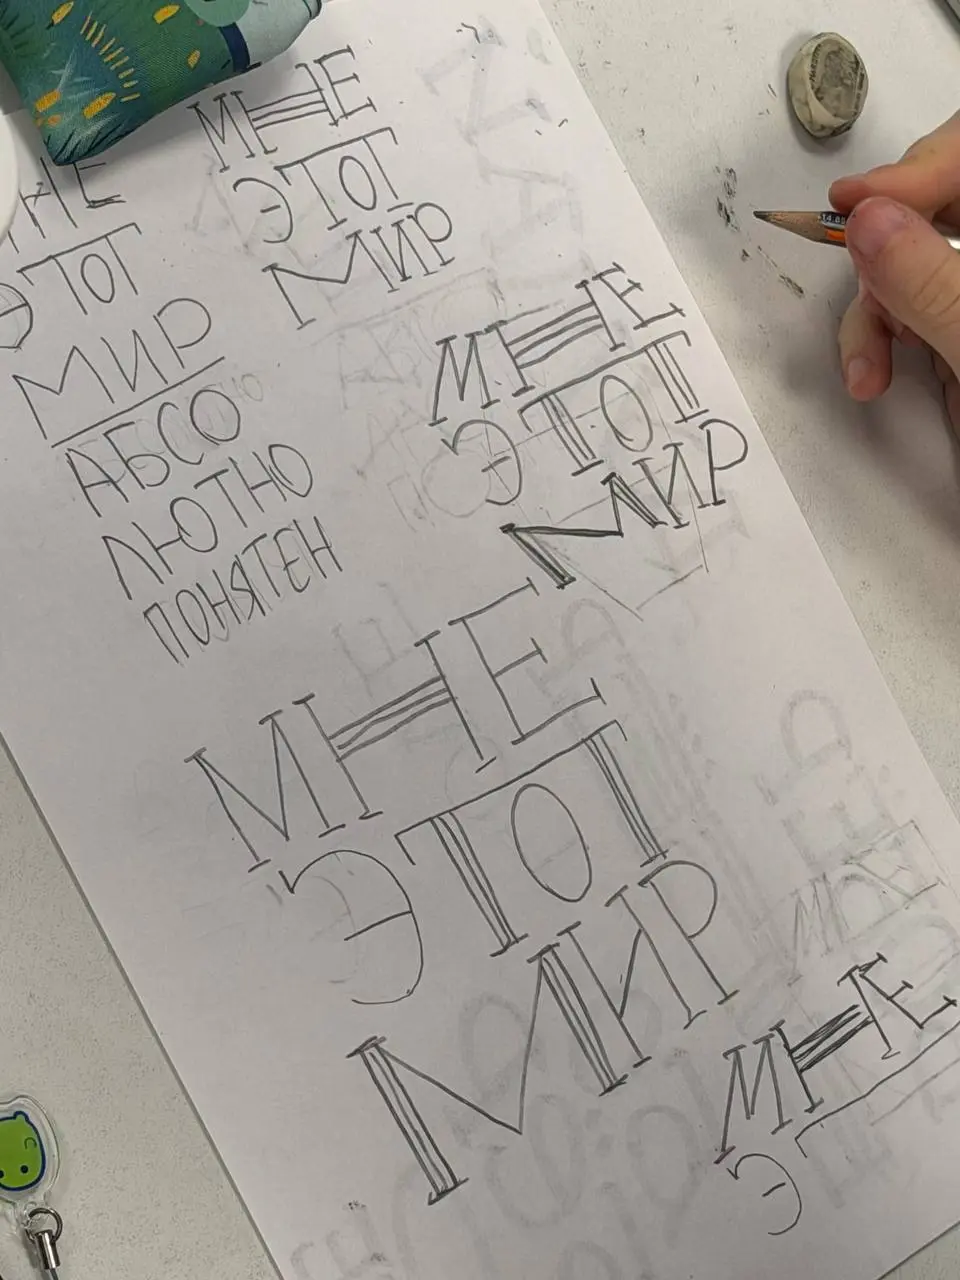 МНЕ
ЭТОТ
МИР
НЕ
ЭТОТ
МИР
АБСО
ЛЮТНО
ПОНЯТЕН
МНЕ
ЭТОТ
МИР
МНЕ
ЭТОТ
МИР
МНЕ
ЭТ